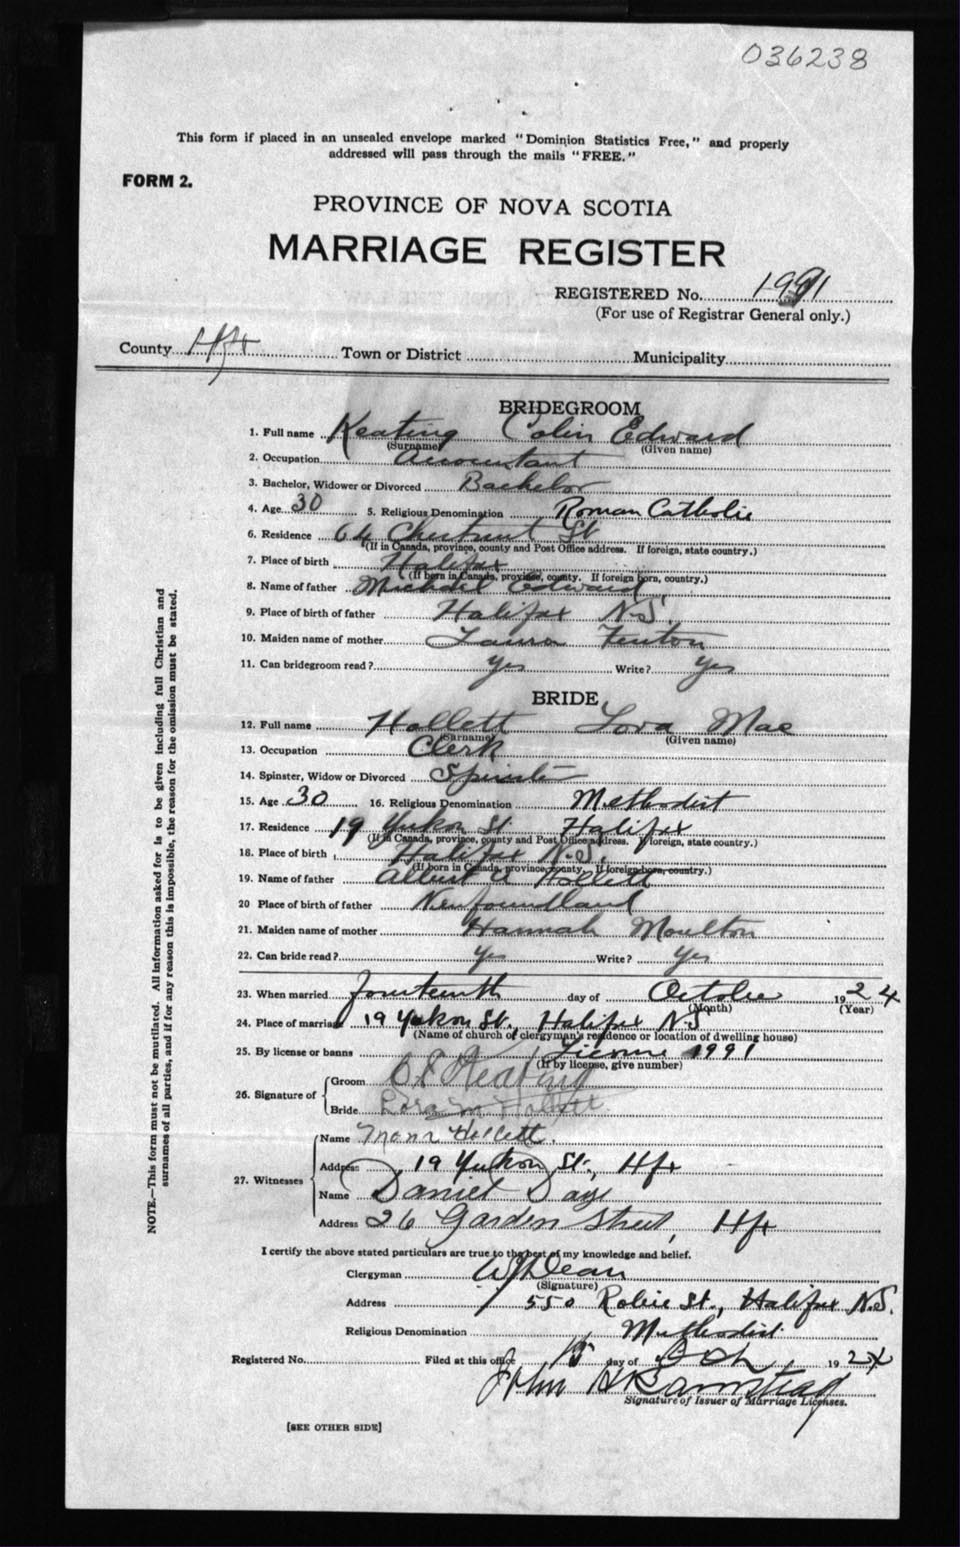 036238
This form if placed in an unsealed envelope marked "Dominion Statistics Free," and properly
addressed will pass through the mails "FREE."
FORM 2.
PROVINCE OF NOVA SCOTIA
MARRIAGE REGISTER
REGISTERED No. 1991
(For use of Registrar General only.)
County Hfx Town or District Municipality
BRIDEGROOM
1. Full name Keating Colin Edward
(Surname) (Given name)
2. Occupation Accountant
3. Bachelor, Widower or Divorced Bachelor
4. Age 30 5. Religious Denomination Roman Catholic
6. Residence 64 Chestnut St
(If in Canada, province, county and Post Office address. If foreign, state country.)
7. Place of birth Halifax
(If born in Canada, province, county. If foreign born, country.)
8. Name of father Michael Edward
9. Place of birth of father Halifax N.S.
10. Maiden name of mother Laura Fenton
11. Can bridegroom read? yes Write? yes
BRIDE
12. Full name Hollett Lora Mae
(Surname) (Given name)
13. Occupation Clerk
14. Spinster, Widow or Divorced Spinster
15. Age 30 16. Religious Denomination Methodist
17. Residence 19 Yukon St Halifax
(If in Canada, province, county and Post Office address. If foreign, state country.)
18. Place of birth Halifax N.S.
(If born in Canada, province, county. If foreign born, country.)
19. Name of father Albert A Hollett
20 Place of birth of father Newfoundland
21. Maiden name of mother Hannah Moulton
22. Can bride read? Yes Write? Yes
23. When married fourteenth day of October 1924
(Month) (Year)
24. Place of marriage 19 Yukon St., Halifax N.S
(Name of church or clergyman's residence or location of dwelling house)
25. By license or banns License 1991
(If by license, give number)
26. Signature of
Groom C.E. Keating
Bride Lora M Hollett
27. Witnesses
Name Mona Hollett.
Address 19 Yukon St., Hfx
Name Daniel Daye
Address 26 Garden Street, Hfx
I certify the above stated particulars are true to the best of my knowledge and belief.
Clergyman WJ Dean
(Signature)
Address 550 Robie St., Halifax N.S.
Religious Denomination Methodist
Registered No. Filed at this office 15 day of Oct, 1924
John H Barnstead
Signature of Issuer of Marriage Licenses.
[SEE OTHER SIDE]
NOTE.—This form must not be mutilated. All information asked for is to be given including full Christian and
surnames of all parties, and if for any reason this is impossible, the reason for the omission must be stated.